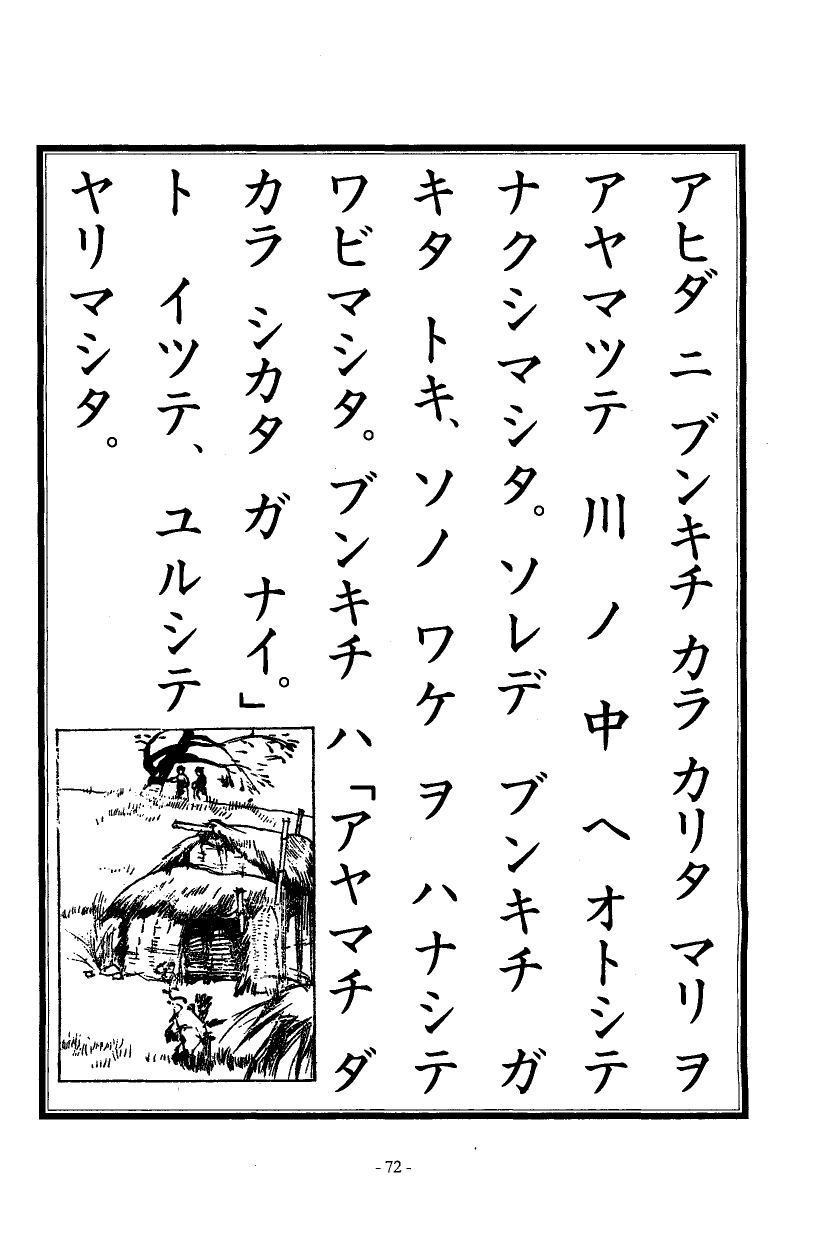 アヒダ ニ ブンキチ カラ カリタ マリ ヲ
アヤマツテ 川 ノ 中 ヘ オトシテ
ナクシマシタ。ソレデ ブンキチ ガ
キタ トキ、ソノ ワケ ヲ ハナシテ
ワビマシタ。ブンキチ ハ「アヤマチ ダ
カラ シカタ ガ ナイ。」
ト イツテ、ユルシテ
ヤリマシタ。
- 72 -